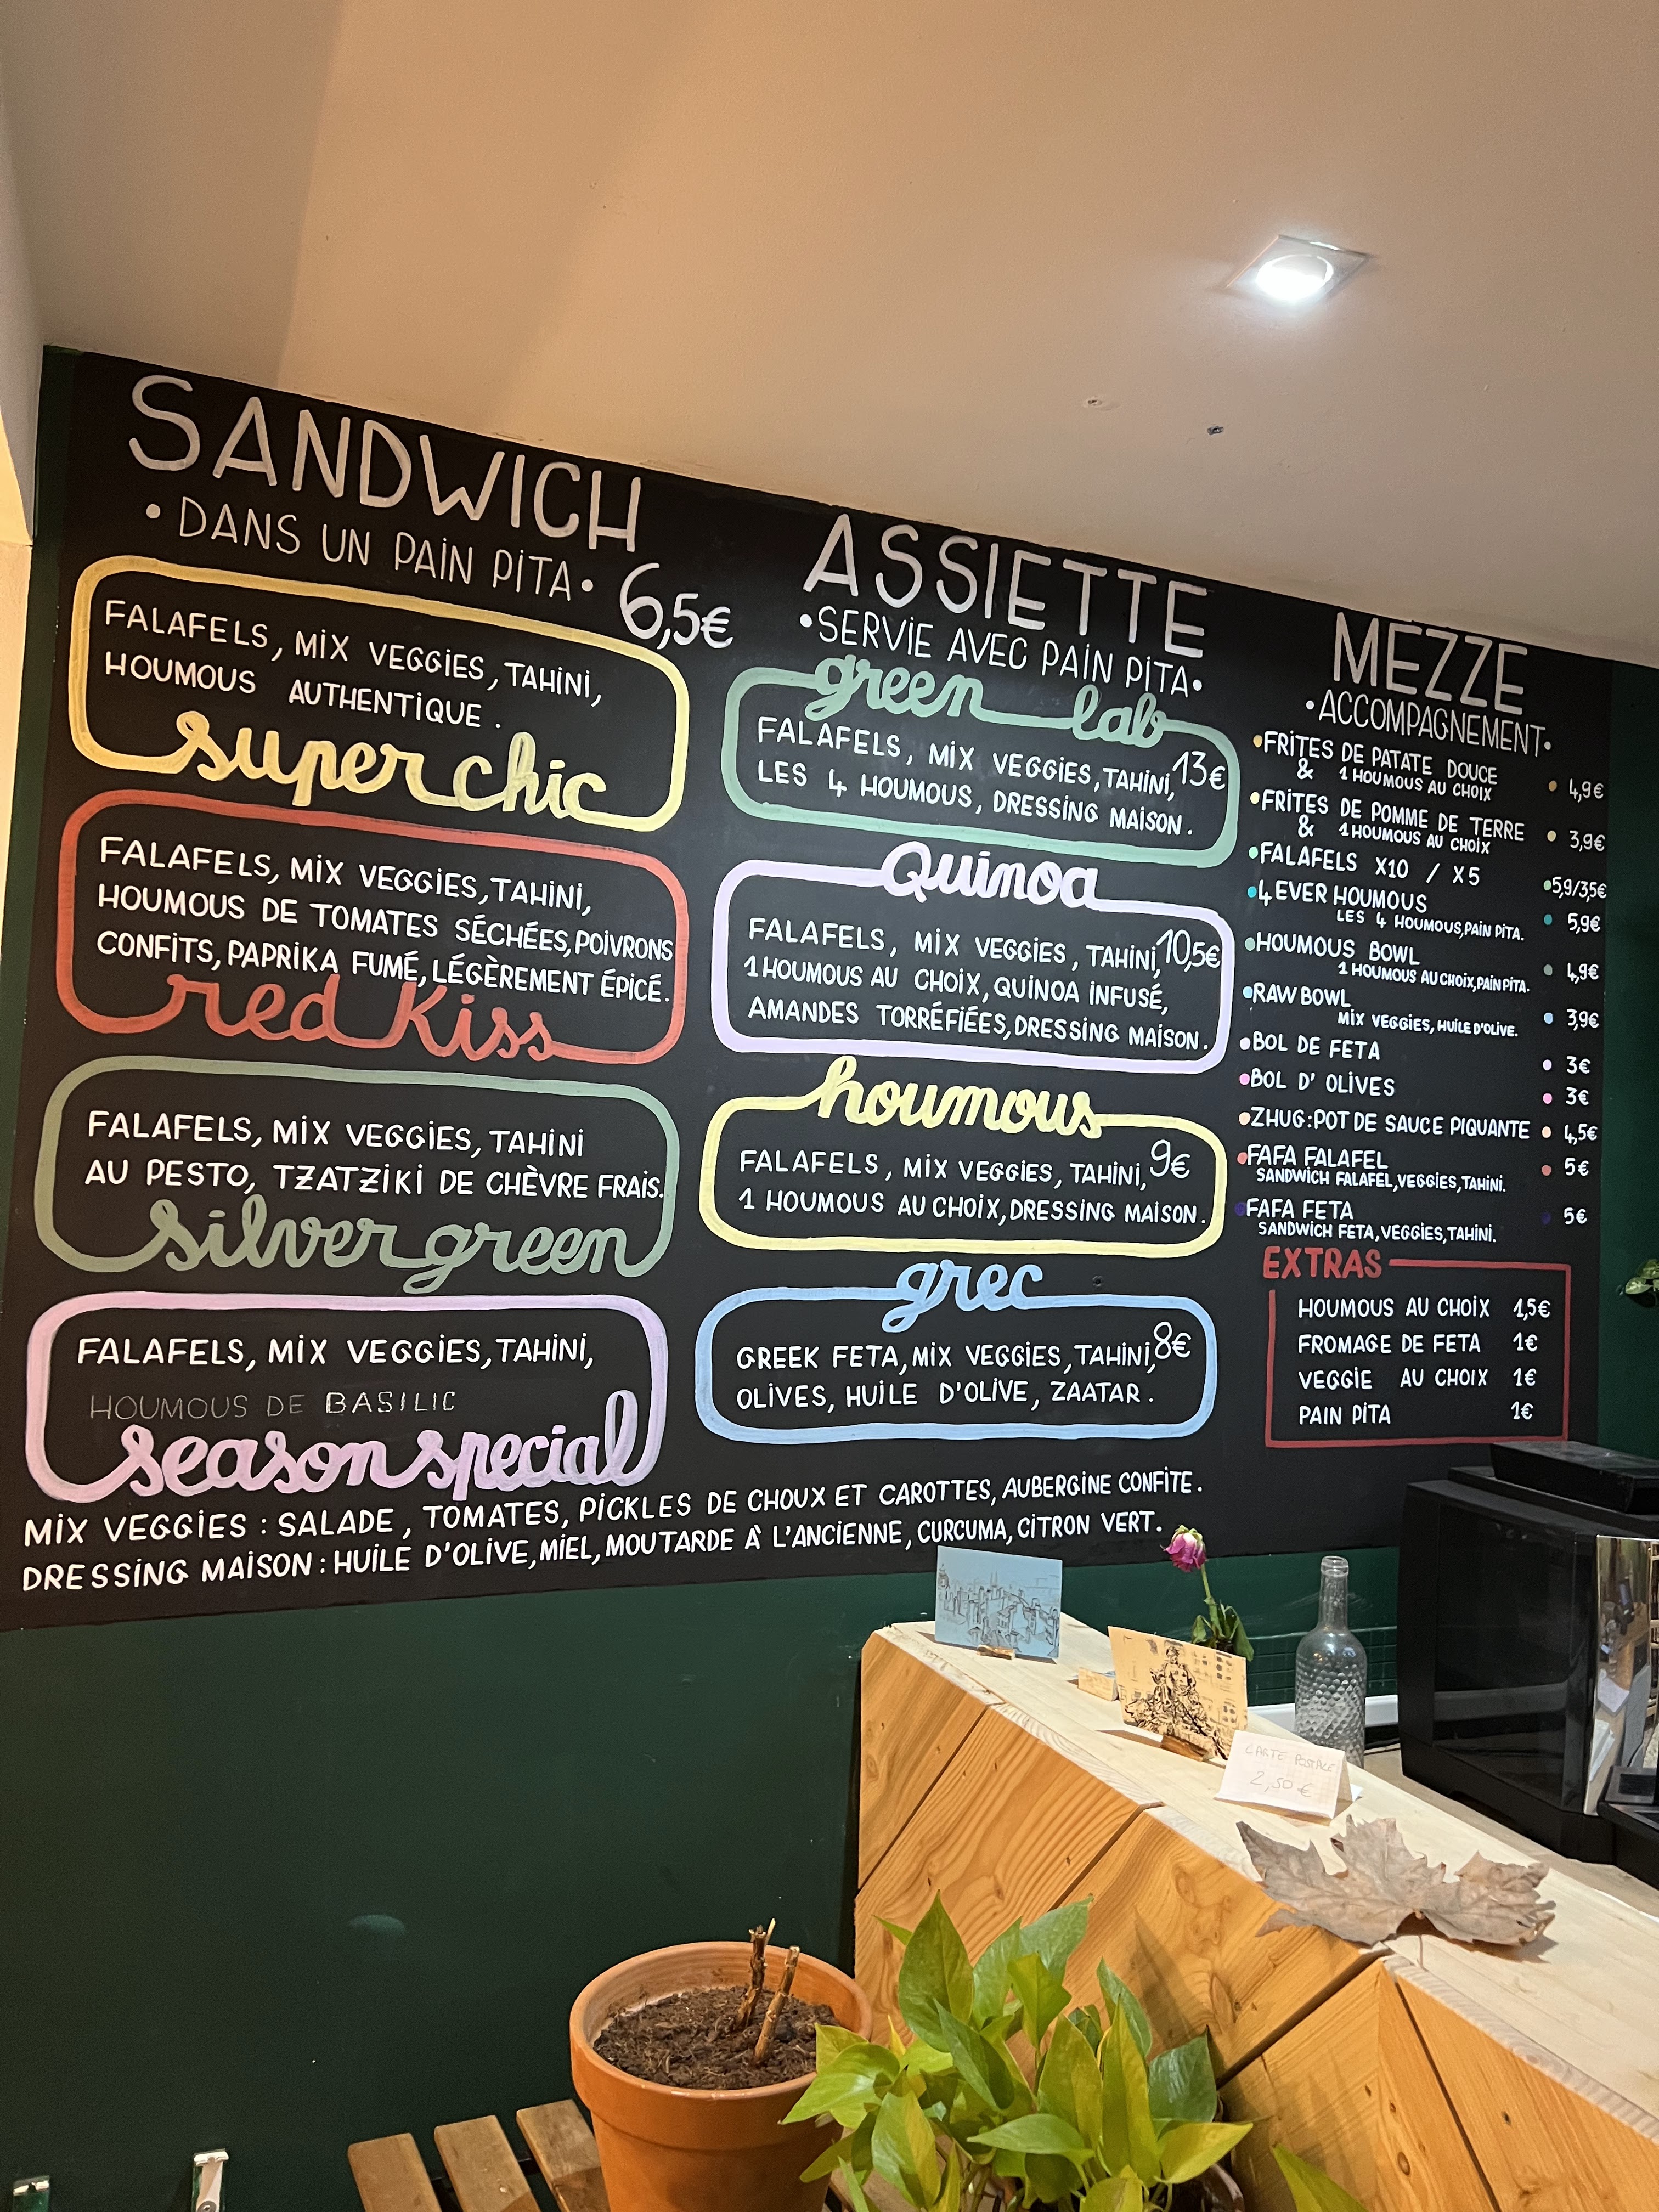 SANDWICH
• DANS UN PAIN PITA •
6,5€
FALAFELS, MIX VEGGIES, TAHINI,
HOUMOUS AUTHENTIQUE.
super chic
FALAFELS, MIX VEGGIES, TAHINI,
HOUMOUS DE TOMATES SÉCHÉES, POIVRONS
CONFITS, PAPRIKA FUMÉ, LÉGÈREMENT ÉPICÉ.
red Kiss
FALAFELS, MIX VEGGIES, TAHINI
AU PESTO, TZATZIKI DE CHÈVRE FRAIS.
silver green
FALAFELS, MIX VEGGIES, TAHINI,
HOUMOUS DE BASILIC
season special
ASSIETTE
• SERVIE AVEC PAIN PITA •
green lab
FALAFELS, MIX VEGGIES, TAHINI, 13€
LES 4 HOUMOUS, DRESSING MAISON.
Quinoa
FALAFELS, MIX VEGGIES, TAHINI, 10,5€
1 HOUMOUS AU CHOIX, QUINOA INFUSÉ,
AMANDES TORRÉFIÉES, DRESSING MAISON.
houmous
FALAFELS, MIX VEGGIES, TAHINI, 9€
1 HOUMOUS AU CHOIX, DRESSING MAISON.
grec
GREEK FETA, MIX VEGGIES, TAHINI, 8€
OLIVES, HUILE D'OLIVE, ZAATAR.
MEZZE
• ACCOMPAGNEMENT •
• FRITES DE PATATE DOUCE
& 1 HOUMOUS AU CHOIX • 4,9€
• FRITES DE POMME DE TERRE
& 1 HOUMOUS AU CHOIX • 3,9€
• FALAFELS X10 / X5 • 5,9/3,5€
• 4 EVER HOUMOUS
LES 4 HOUMOUS, PAIN PITA. • 5,9€
• HOUMOUS BOWL
1 HOUMOUS AU CHOIX, PAIN PITA. • 4,9€
• RAW BOWL
MIX VEGGIES, HUILE D'OLIVE. • 3,9€
• BOL DE FETA • 3€
• BOL D'OLIVES • 3€
• ZHUG: POT DE SAUCE PIQUANTE • 4,5€
• FAFA FALAFEL • 5€
SANDWICH FALAFEL, VEGGIES, TAHINI.
• FAFA FETA • 5€
SANDWICH FETA, VEGGIES, TAHINI.
EXTRAS
HOUMOUS AU CHOIX 1,5€
FROMAGE DE FETA 1€
VEGGIE AU CHOIX 1€
PAIN PITA 1€
MIX VEGGIES : SALADE, TOMATES, PICKLES DE CHOUX ET CAROTTES, AUBERGINE CONFITE.
DRESSING MAISON : HUILE D'OLIVE, MIEL, MOUTARDE À L'ANCIENNE, CURCUMA, CITRON VERT.
CARTE POSTALE
2,50 €